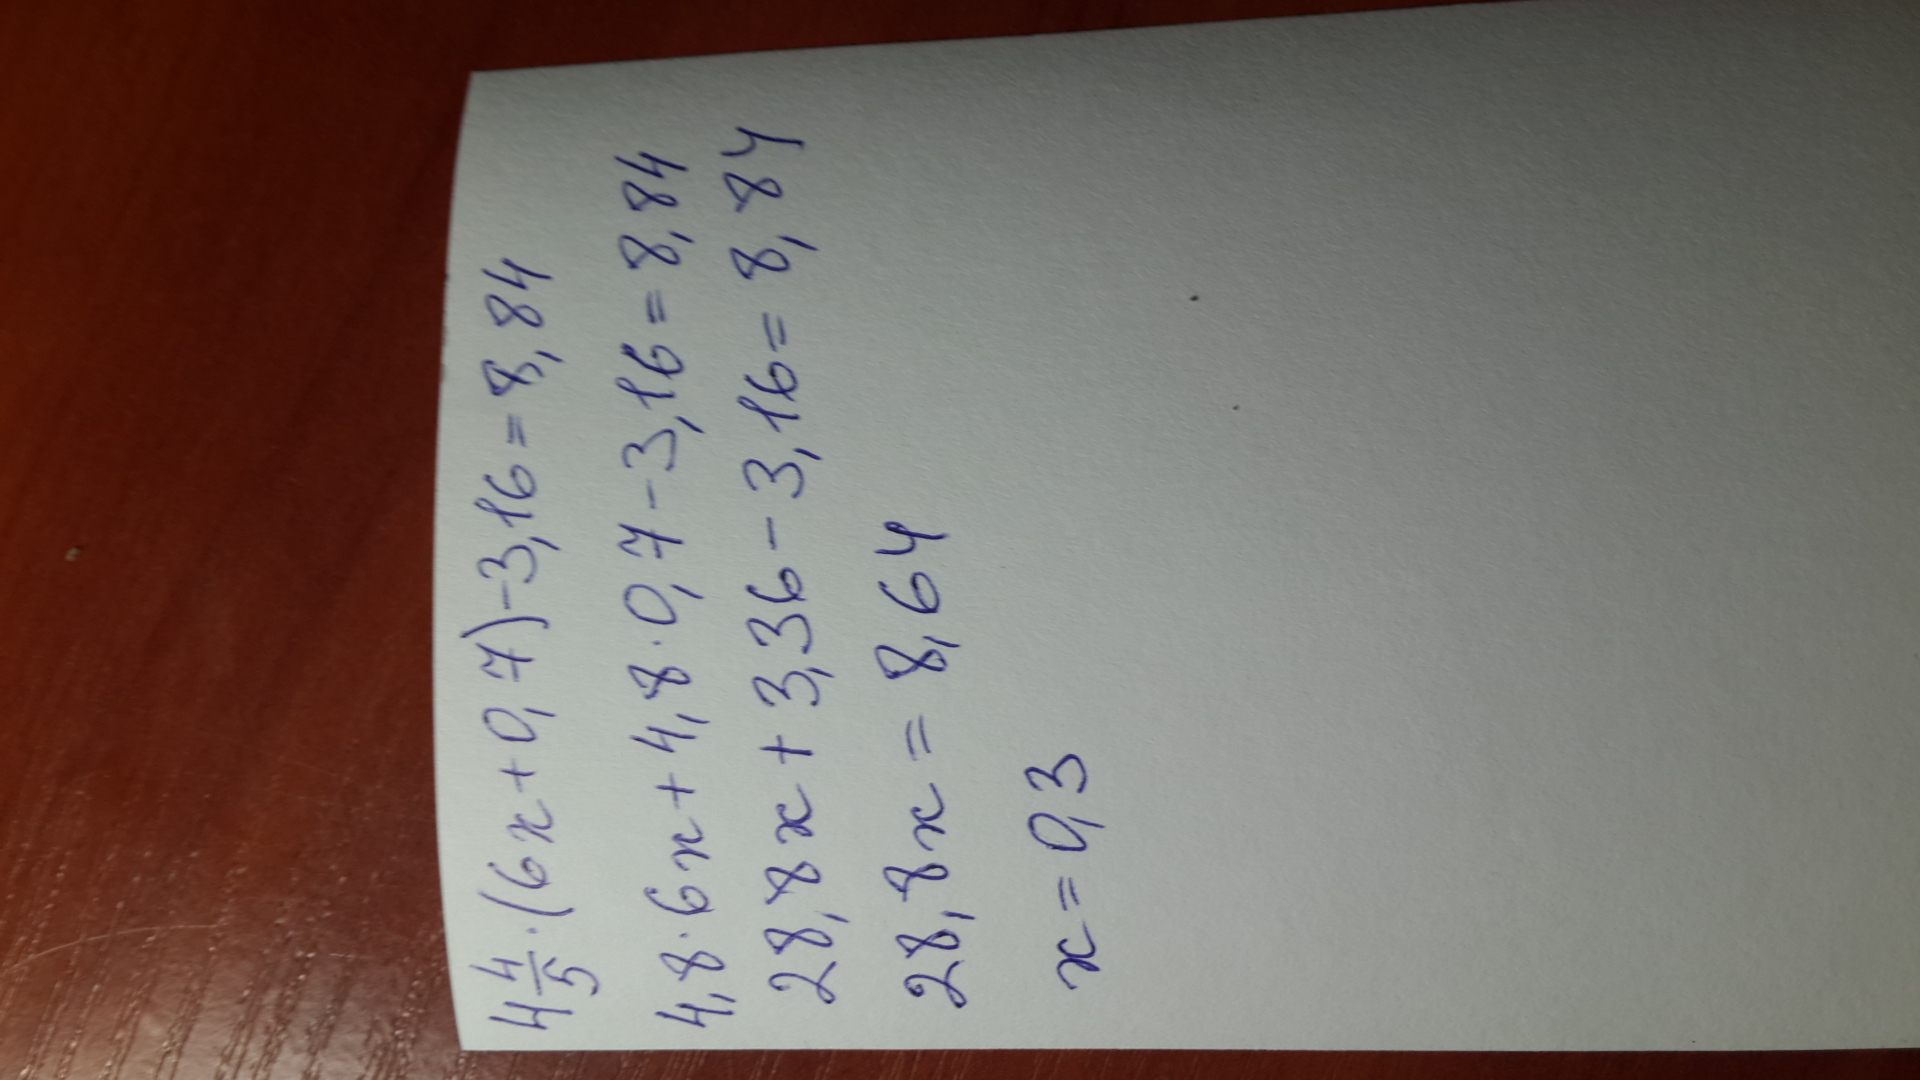 4 4/5 · (6x + 0,7) - 3,16 = 8,84
4,8 · 6x + 4,8 · 0,7 - 3,16 = 8,84
28,8x + 3,36 - 3,16 = 8,84
28,8x = 8,64
x = 0,3